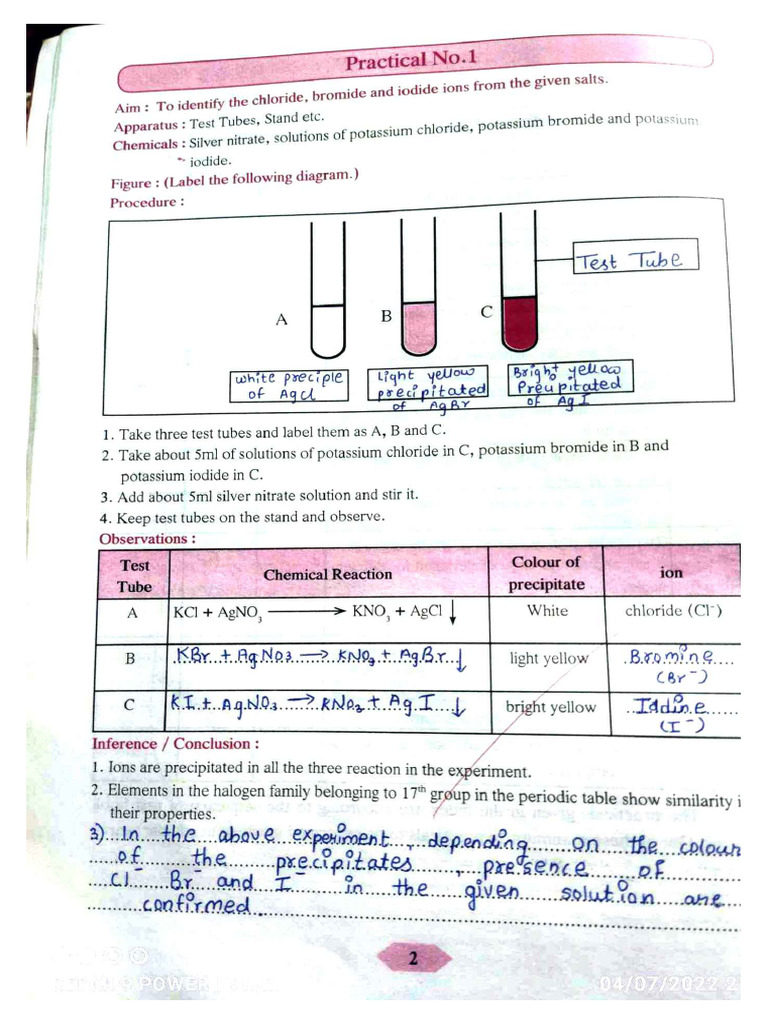 Practical No.1
Aim : To identify the chloride, bromide and iodide ions from the given salts.
Apparatus : Test Tubes, Stand etc.
Chemicals : Silver nitrate, solutions of potassium chloride, potassium bromide and potassium
iodide.
Figure : (Label the following diagram.)
Procedure :
Test Tube
A B C
white preciple of Agcl
Light yellow precipitated of AgBr
Bright yellow Preupitated of AgI
1. Take three test tubes and label them as A, B and C.
2. Take about 5ml of solutions of potassium chloride in C, potassium bromide in B and
potassium iodide in C.
3. Add about 5ml silver nitrate solution and stir it.
4. Keep test tubes on the stand and observe.
Observations :
Test Tube Chemical Reaction Colour of precipitate ion
A KCl + AgNO3 → KNO3 + AgCl ↓ White chloride (Cl⁻)
B KBr + AgNO3 → KNO3 + AgBr ↓ light yellow Bromine (Br⁻)
C KI + AgNO3 → KNO2 + AgI ↓ bright yellow Iddine (I⁻)
Inference / Conclusion :
1. Ions are precipitated in all the three reaction in the experiment.
2. Elements in the halogen family belonging to 17th group in the periodic table show similarity i
their properties.
3) In the above experiment, depending on the colour
of the precipitates, presence of
Cl⁻ Br⁻ and I⁻ in the given solution are
confirmed.
2
04/07/2022 2